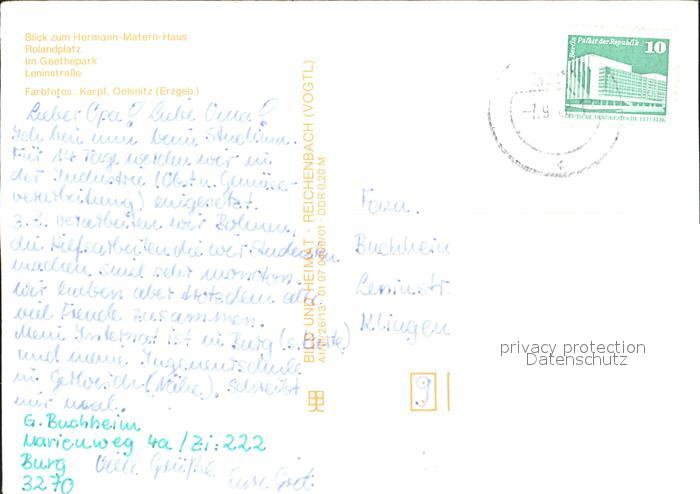 Blick zum Hermann-Matern-Haus
Rolandplatz
Im Goethepark
Leninstraße
Farbfotos: Karpf, Oelsnitz (Erzgeb.)
Lieber Opa! Liebe Oma!
Ich bin nun beim Studium.
Für 14 Tage werden wir in
der Industrie (Obst u. Gemüse-
verarbeitung) eingesetzt.
z.Z. verarbeiten wir Bohnen,
die Hilfsarbeiten die wir Studenten
machen sind sehr monoton.
Wir haben aber trotzdem alle
viel Freude zusammen.
Mein Internat ist in Burg (s. Seite)
und meine Ingenieurschule
in (Nähe). Schreibt
mir mal.
G. Buchheim
Marienweg 4a / Zi: 222
Burg
3270
Viele Grüße Eure
BILD UND HEIMAT · REICHENBACH (VOGTL)
DDR 0,20 M
Berlin Palast der Republik 10
DEUTSCHE DEMOKRATISCHE REPUBLIK
-7.9
Fam.
Buchheim
Leninstr.
Klingen
privacy protection
Datenschutz